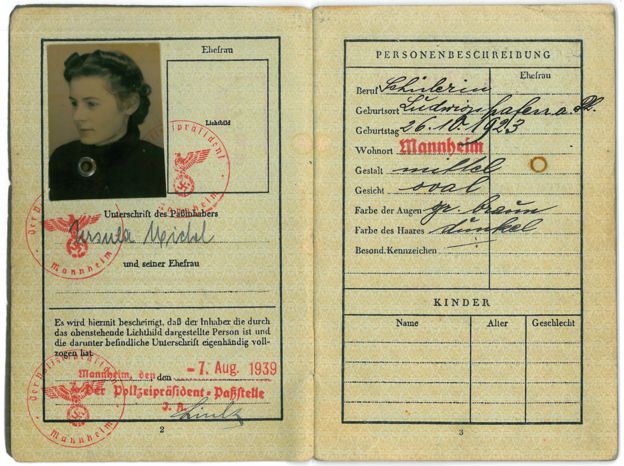 Ehefrau
Lichtbild
Der Polizeipräsident
Mannheim
Unterschrift des Paßinhabers
Ursula Michel
Der Polizeipräsident
Mannheim
und seiner Ehefrau
Es wird hiermit bescheinigt, daß der Inhaber die durch
das obenstehende Lichtbild dargestellte Person ist und
die darunter befindliche Unterschrift eigenhändig voll-
zogen hat
Mannheim, den , den - 7. Aug. 1939
Der Polizeipräsident - Paßstelle
J. A.
Der Polizeipräsident
Mannheim
2
PERSONENBESCHREIBUNG
Ehefrau
Beruf Schülerin
Geburtsort Ludwigshafen a. Rh.
Geburtstag 26.10.1923
Wohnort Mannheim
Gestalt mittel
Gesicht oval
Farbe der Augen gr. braun
Farbe des Haares dunkel
Besond. Kennzeichen
KINDER
Name Alter Geschlecht
3